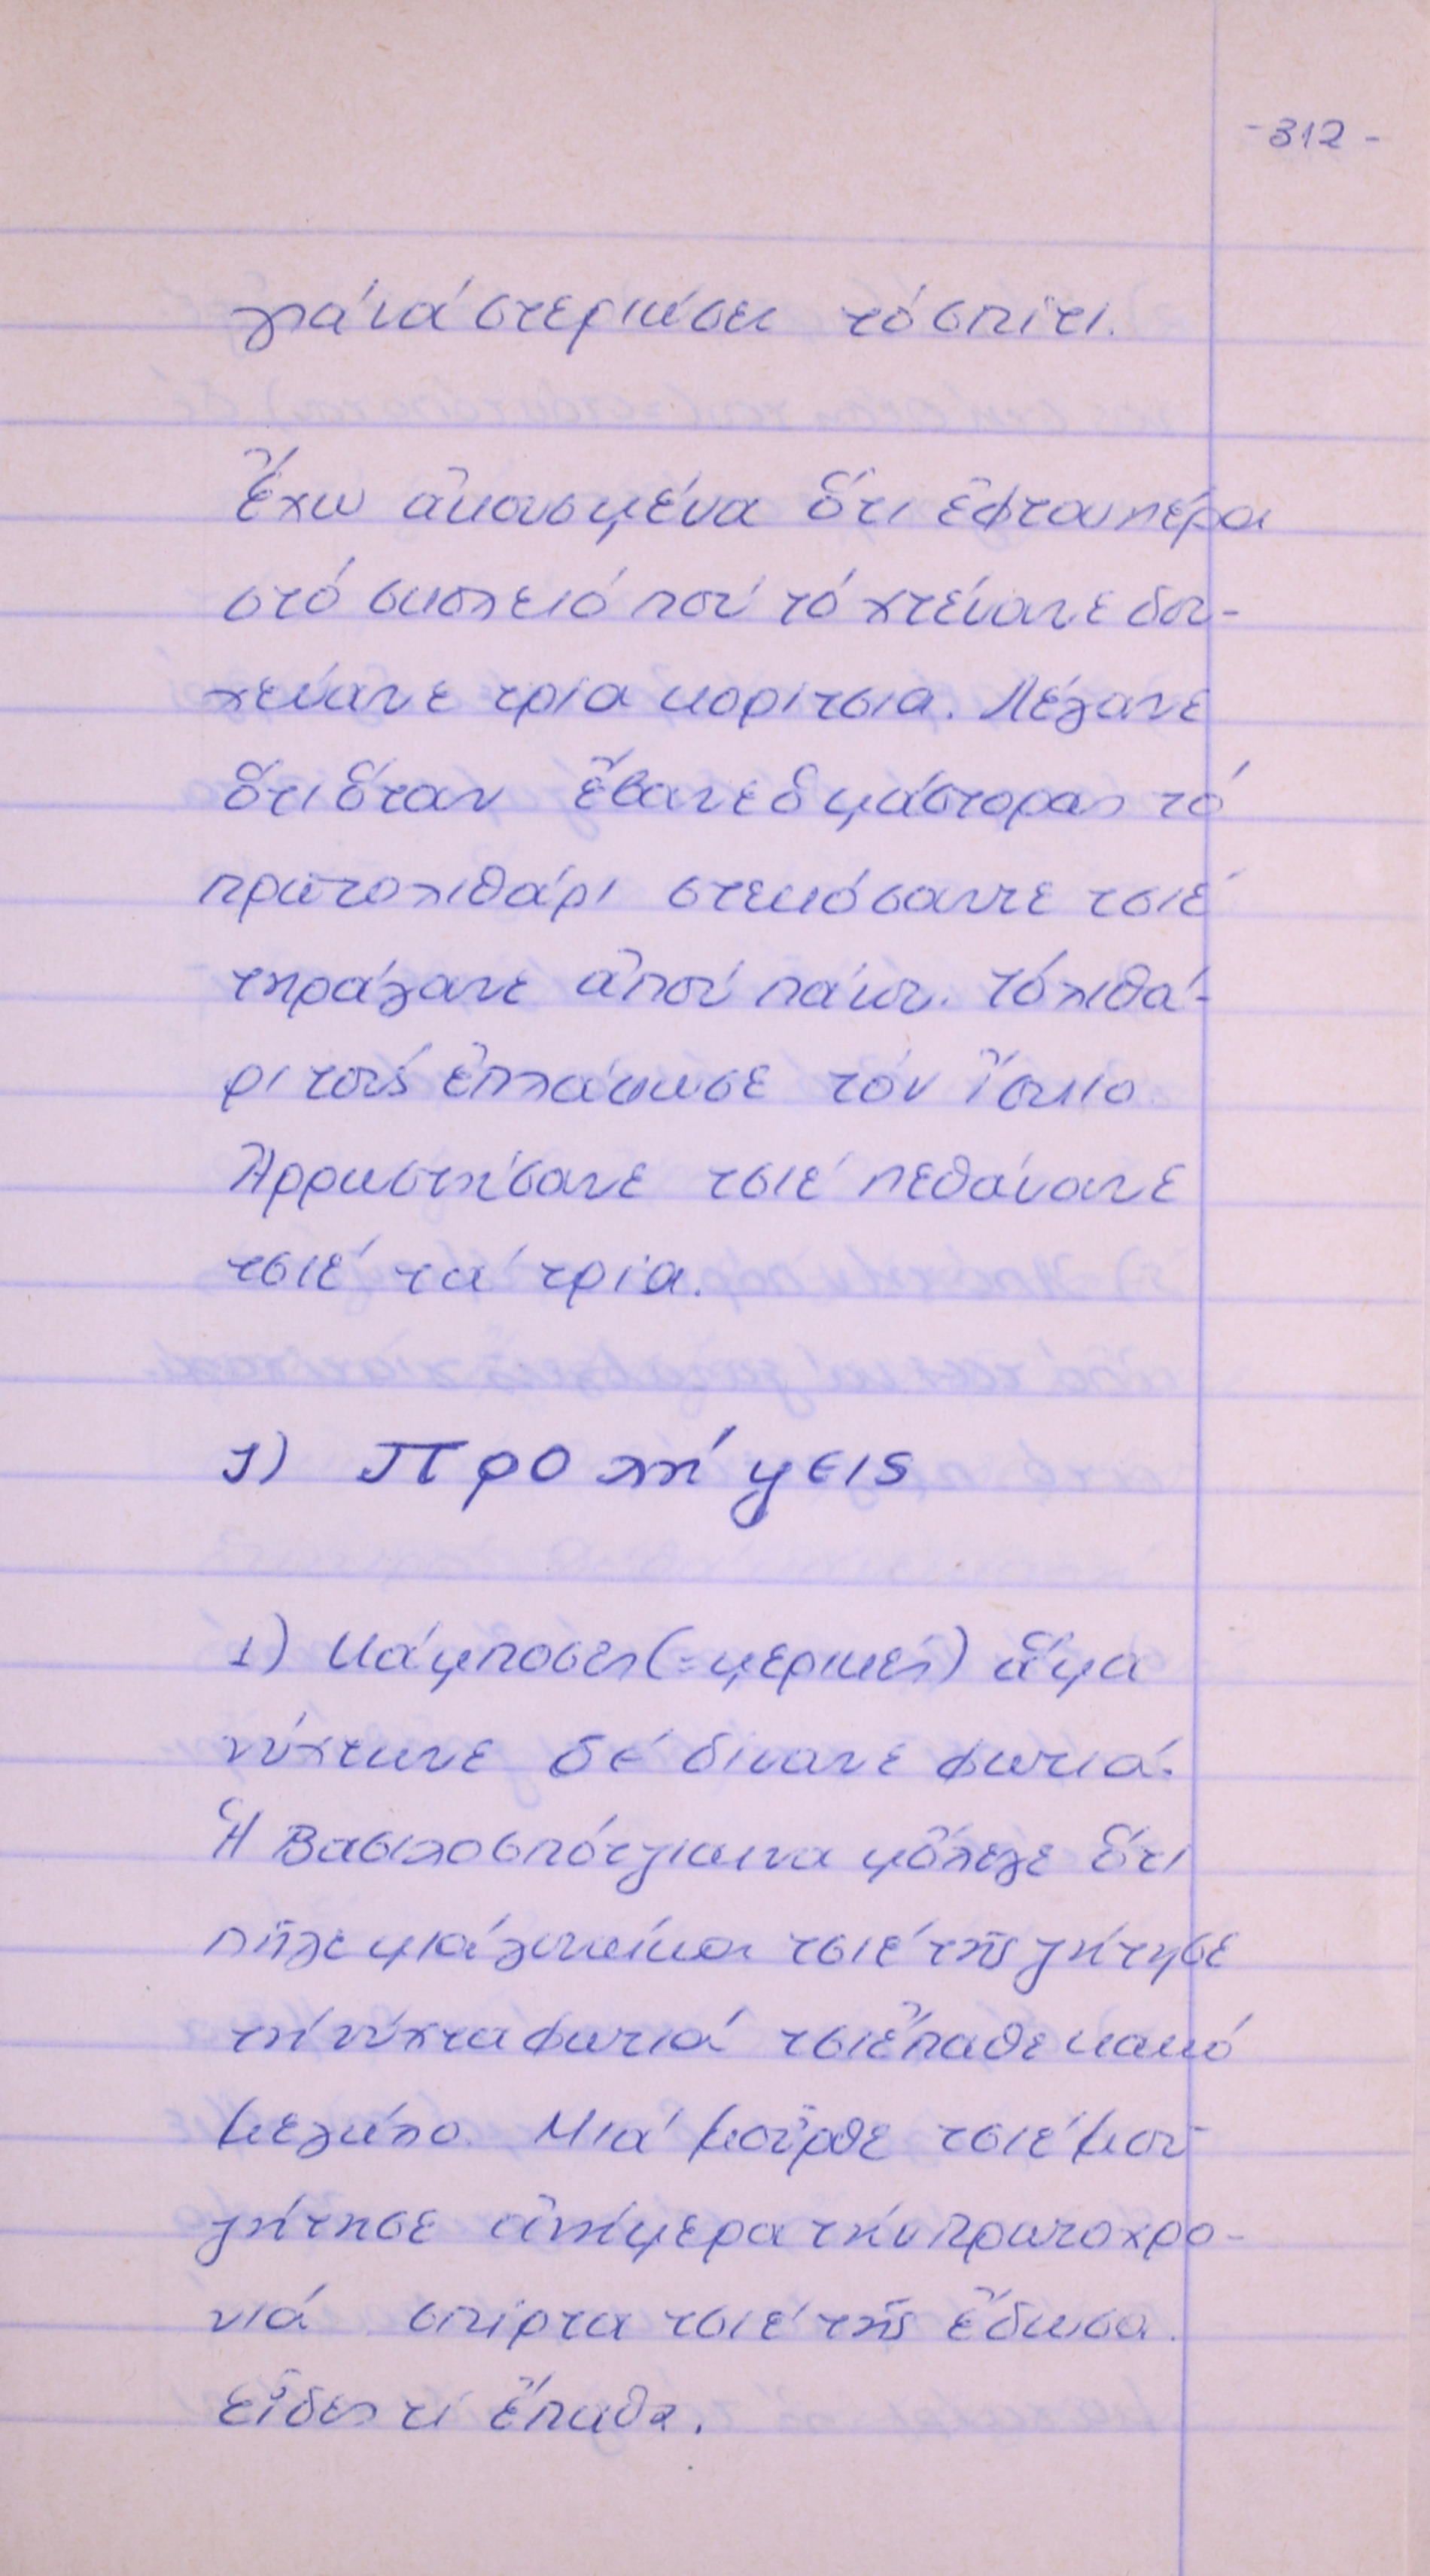 -312-
γιά νά στεριώσει τό σπίτι.
Ἔχω ἀκουσμένα ὅτι ἐφτουπέρα
στό σκολειό πού τό χτίνανε δου-
λεύανε τρία κορίτσια. Λέγανε
ὅτι ὅταν ἔβανε ὁ μάστορας τό
πρωτολιθάρι στεκόσαντε τσιέ
τηράγανε ἀπού πάνου. Τό λιθά-
ρι τούς ἐπλάκωσε τόν ἴσκιο.
Ἀρρωστήσανε τσιέ πεθάνανε
τσιέ τά τρία.
1) Προλήψεις
1) Κάμποσες (=μερικές) ἅμα
νύχτωνε δέ δίνανε φωτιά.
Ἡ Βασιλοσπότγιαινα μὄλεγε ὅτι
πῆγε μιά γυναίκα τσιέ τῆς ζήτησε
τή νύχτα φωτιά τσιέ ἔπαθε κακό
μεγάλο. Μιά μοὖρθε τσιέ μου
ζήτησε ἀνήμερα τήν πρωτοχρο-
νιά σπίρτα τσιέ τῆς ἔδωσα.
εἶδες τί ἔπαθα.